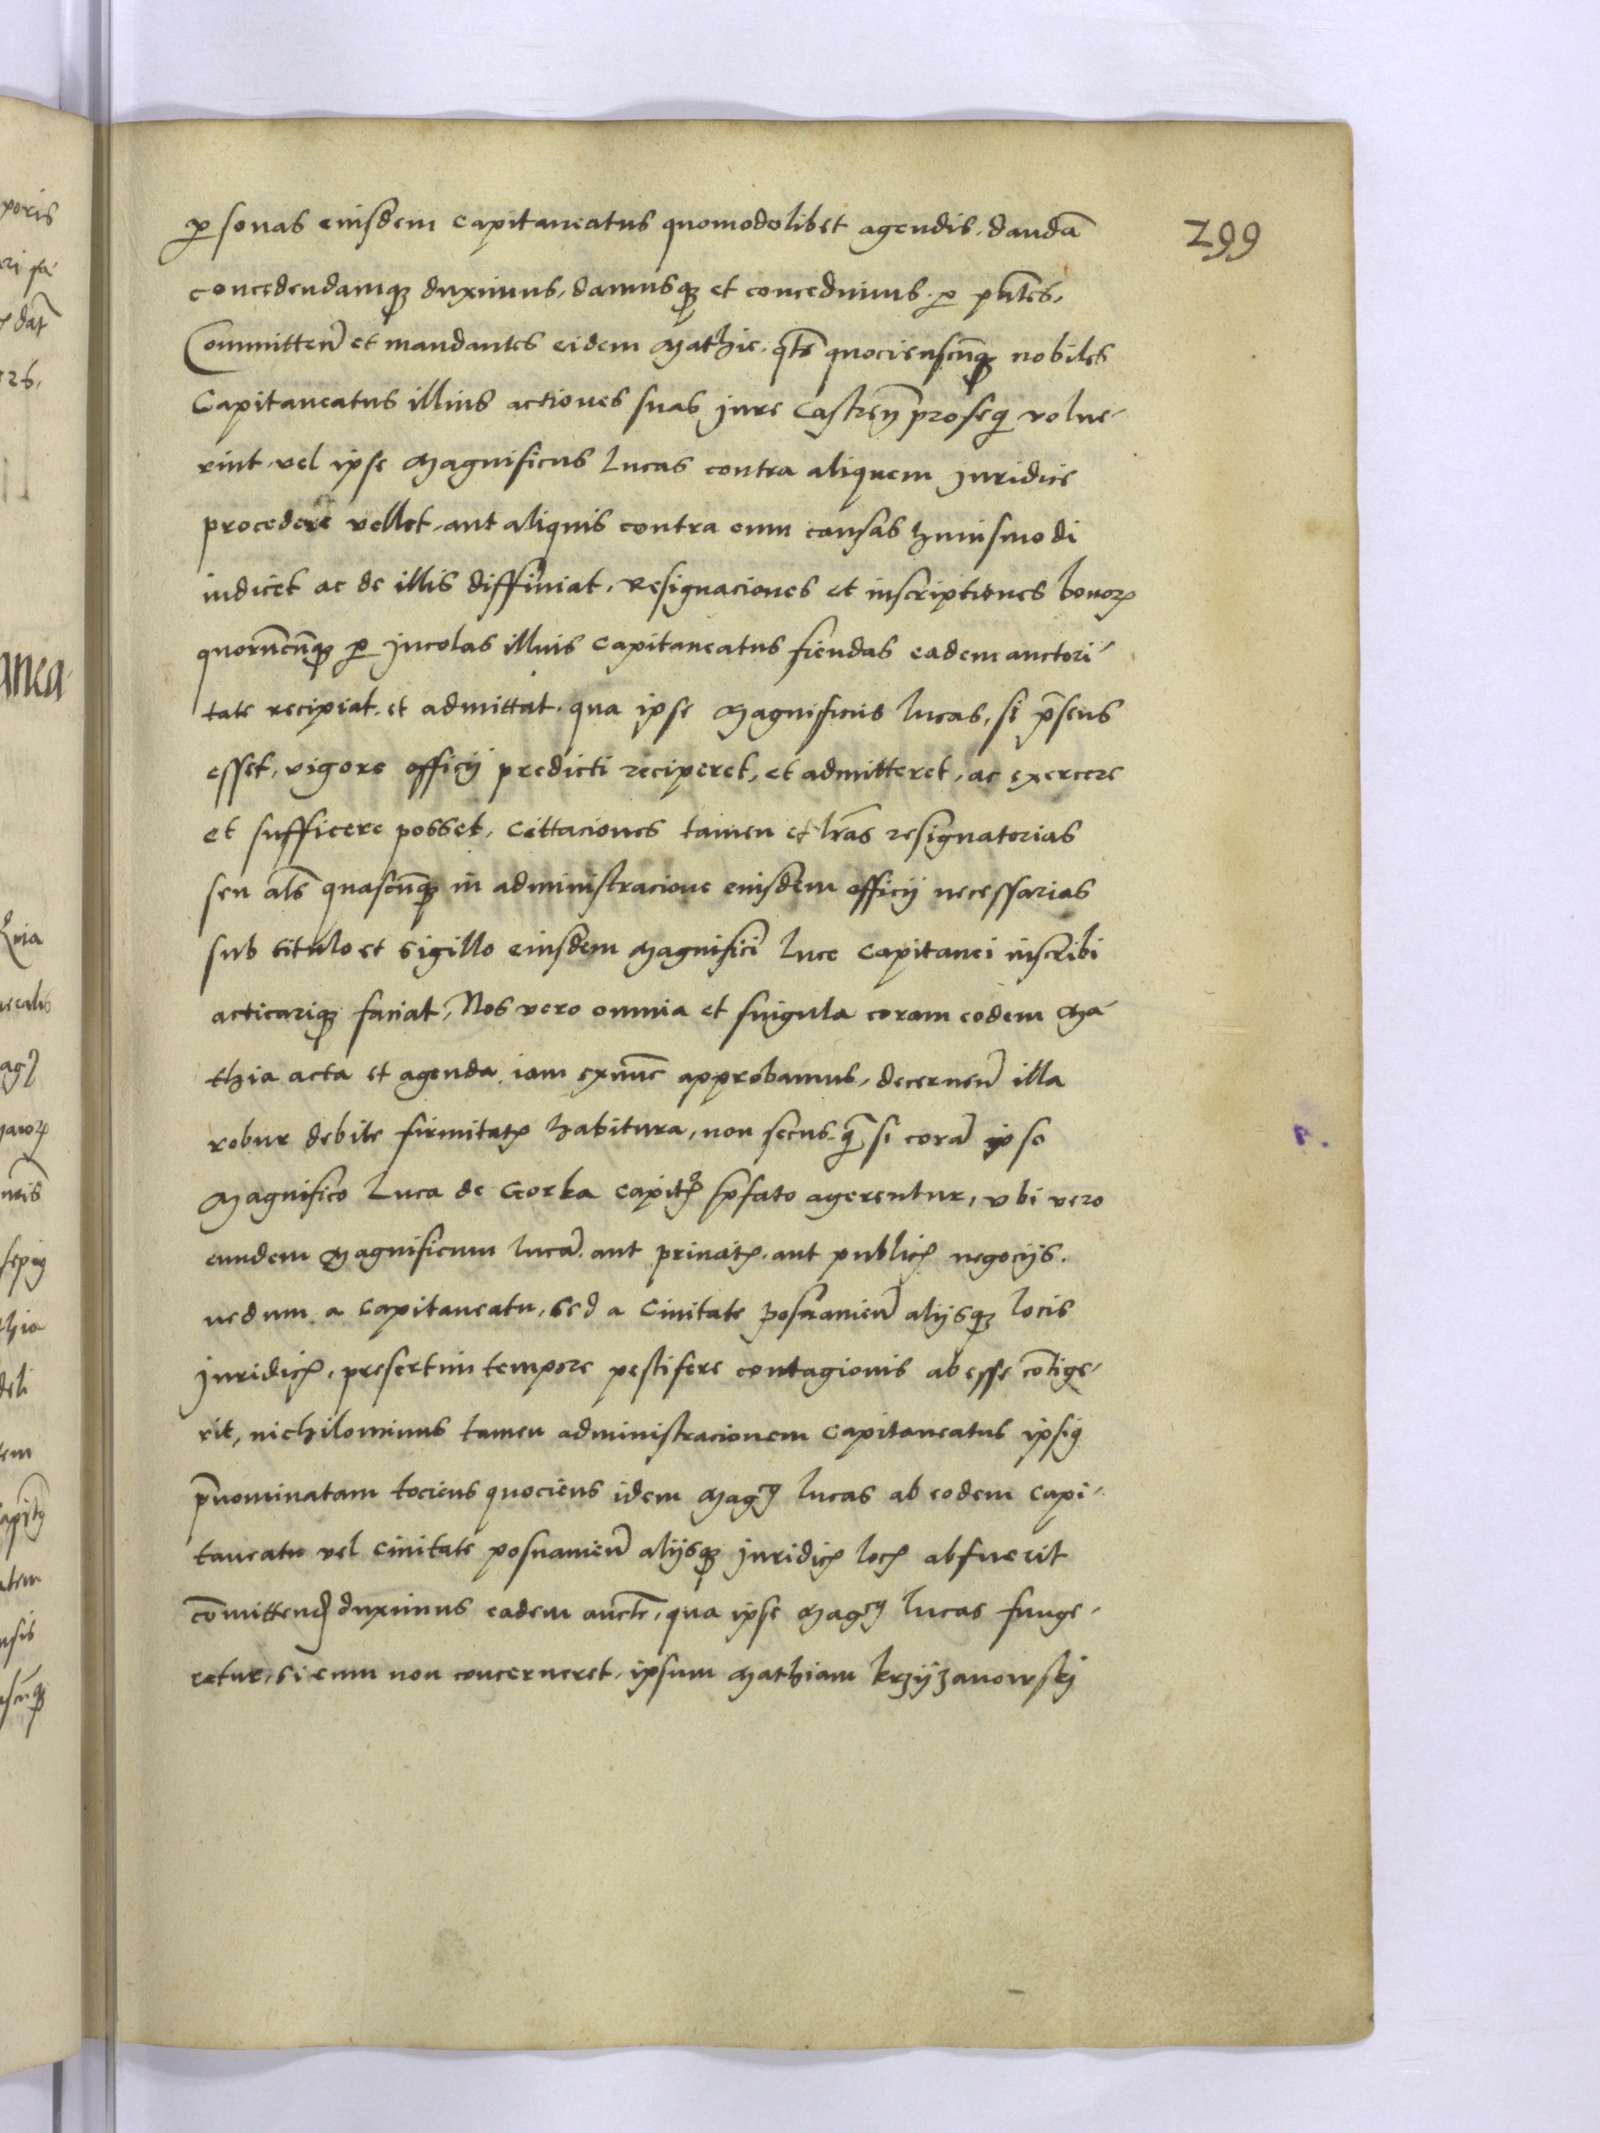 299
p̲sonas eiusdem Capitaneatus quomodolibet agendis, dandā
concedendamqʒ duximus, damusqʒ et concedimus p̲ pn̄tes,
Committen̄ et mandantes eidem Mathie, qt̄s quocienscūqʒ nobiles
Capitaneatus illius actiones suas jure Castren̄ prosequi volue-
rint, vel ipse Magnificus Lucas contra aliquem juridice
procedere vellet, aut aliquis contra eum causas huiusmodi
iudicet ac de illis diffiniat, Resignaciones et inscriptiones bonoꝝ
quorūcūqʒ p̲ jncolas illius Capitaneatus fiendas eadem auctori-
tate recipiat et admittat, qua ipse Magnificus Lucas, si p̄sens
esset, vigore officij predicti reciperet, et admitteret, ac exercere
et sufficere posset, Cittaciones tamen et lrās resignatorias
seu als̄ quascūqʒ in administracione eiusdem officij necessarias
sub titulo et sigillo eiusdem Magnifici Luce Capitanei inscribi
acticariqʒ faciat, Nos vero omnia et singula coram eodem Ma-
thia acta et agenda iam exnūc approbamus, decernen̄ illa
robur debite firmitatꝭ habitura, non secus q̄ si corā ipso
Magnifico Luca de Gorka Capitꝰ p̄fato agerentur, vbi vero
eundem Magnificum Lucā aut priuatꝭ aut publicꝭ negocijs
nedum a Capitaneatu, sed a Ciuitate Posnanien̄ alijsqʒ locis
juridicꝭ, presertim tempore pestifere contagionis abesse cōtige-
rit, nichilominus tamen administracionem Capitaneatus ipsiꝰ
p̄nominatam tociens quociens idem Magcꝰ Lucas ab eodem Capi-
taneatu vel Ciuitate posnanien̄ alijsqʒ juridicꝭ locꝭ abfuerit
cōmittend̄ duximus eadem auctē, qua ipse Magcꝰ Lucas funge-
retur, si eum non concerneret, ipsum Mathiam krzijzanowskj